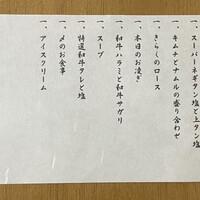 一、スーパーネギタン塩と上タン塩
一、キムチとナムルの盛り合わせ
一、きらしのロース
一、本日のお凌ぎ
一、和牛ハラミと和牛サガリ
一、スープ
一、特選和牛タレと塩
一、〆のお食事
一、アイスクリーム